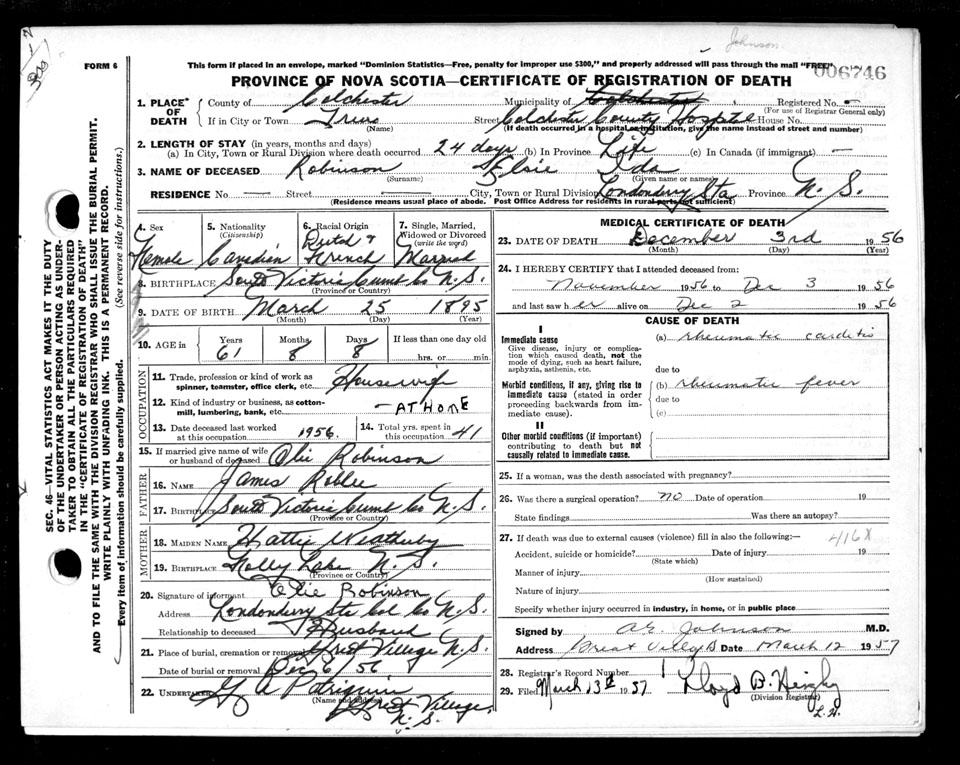 Johnson
This form if placed in an envelope, marked "Dominion Statistics—Free, penalty for improper use $300," and properly addressed will pass through the mail "FREE"
FORM 6
006746
PROVINCE OF NOVA SCOTIA—CERTIFICATE OF REGISTRATION OF DEATH
1. PLACE OF DEATH County of Colchester Municipality of Colchester Registered No. -
(For use of Registrar General only)
If in City or Town Truro Street Colchester County Hospital House No.
(Name) (If death occurred in a hospital or institution, give the name instead of street and number)
2. LENGTH OF STAY (in years, months and days)
(a) In City, Town or Rural Division where death occurred 24 days (b) In Province Life (c) In Canada (if immigrant) —
3. NAME OF DECEASED Robinson Elsie Ida
(Surname) (Given or names)
RESIDENCE No. — Street — City, Town or Rural Division Londonderry Sta Province N. S.
(Residence means usual place of abode. Post Office Address for residents in rural parts not sufficient)
4. Sex Female
5. Nationality (Citizenship) Canadian
6. Racial Origin Dutch & French
7. Single, Married, Widowed or Divorced (write the word) Married
8. BIRTHPLACE South Victoria Cumb Co N.S.
(Province or Country)
9. DATE OF BIRTH March 25 1895
(Month) (Day) (Year)
10. AGE in Years 61 Months 8 Days 8 If less than one day old
hrs. or min.
OCCUPATION
11. Trade, profession or kind of work as spinner, teamster, office clerk, etc. Housewife
12. Kind of industry or business, as cotton-mill, lumbering, bank, etc. — AT HOME
13. Date deceased last worked at this occupation 1956.
14. Total yrs. spent in this occupation 41
15. If married give name of wife or husband of deceased Olie Robinson
FATHER
16. NAME James Roblee
17. BIRTHPLACE South Victoria Cumb Co N.S.
(Province or Country)
MOTHER
18. MAIDEN NAME Hattie Weatherby
19. BIRTHPLACE Folly Lake N.S.
(Province or Country)
20. Signature of informant Olie Robinson
Address Londonderry Sta Col Co N.S.
Relationship to deceased Husband
21. Place of burial, cremation or removal Great Village N.S.
Date of burial or removal Dec 6 56
22. UNDERTAKER G A Patriquin
(Name and address)
Great Village
N. S.
MEDICAL CERTIFICATE OF DEATH
23. DATE OF DEATH December 3rd 1956
(Month) (Day) (Year)
24. I HEREBY CERTIFY that I attended deceased from:
November 1956 to Dec 3 1956
and last saw her alive on Dec 2 1956
CAUSE OF DEATH
I
Immediate cause
Give disease, injury or complication which caused death, not the mode of dying, such as heart failure, asphyxia, asthenia, etc.
(a) rheumatic carditis
due to
Morbid conditions, if any, giving rise to immediate cause (stated in order proceeding backwards from immediate cause).
(b) rheumatic fever
due to
(c)
II
Other morbid conditions (if important) contributing to death but not causally related to immediate cause.
25. If a woman, was the death associated with pregnancy?
26. Was there a surgical operation? no Date of operation 19
State findings Was there an autopsy?
27. If death was due to external causes (violence) fill in also the following:— 416X
Accident, suicide or homicide? Date of injury 19
(State which)
Manner of injury
(How sustained)
Nature of injury
Specify whether injury occurred in industry, in home, or in public place
Signed by A.E. Johnson M.D.
Address Great Village Date March 12 1957
28. Registrar's Record Number 1
29. Filed March 13th 1957 Lloyd B.
(Division Registrar)
L.H.
SEC. 46—VITAL STATISTICS ACT MAKES IT THE DUTY
OF THE UNDERTAKER OR PERSON ACTING AS UNDER-
TAKER TO OBTAIN ALL THE PARTICULARS REQUIRED
IN THE "CERTIFICATE OF REGISTRATION OF DEATH"
AND TO FILE THE SAME WITH THE DIVISION REGISTRAR WHO SHALL ISSUE THE BURIAL PERMIT.
WRITE PLAINLY WITH UNFADING INK. THIS IS A PERMANENT RECORD.
Every item of information should be carefully supplied. (See reverse side for instructions.)